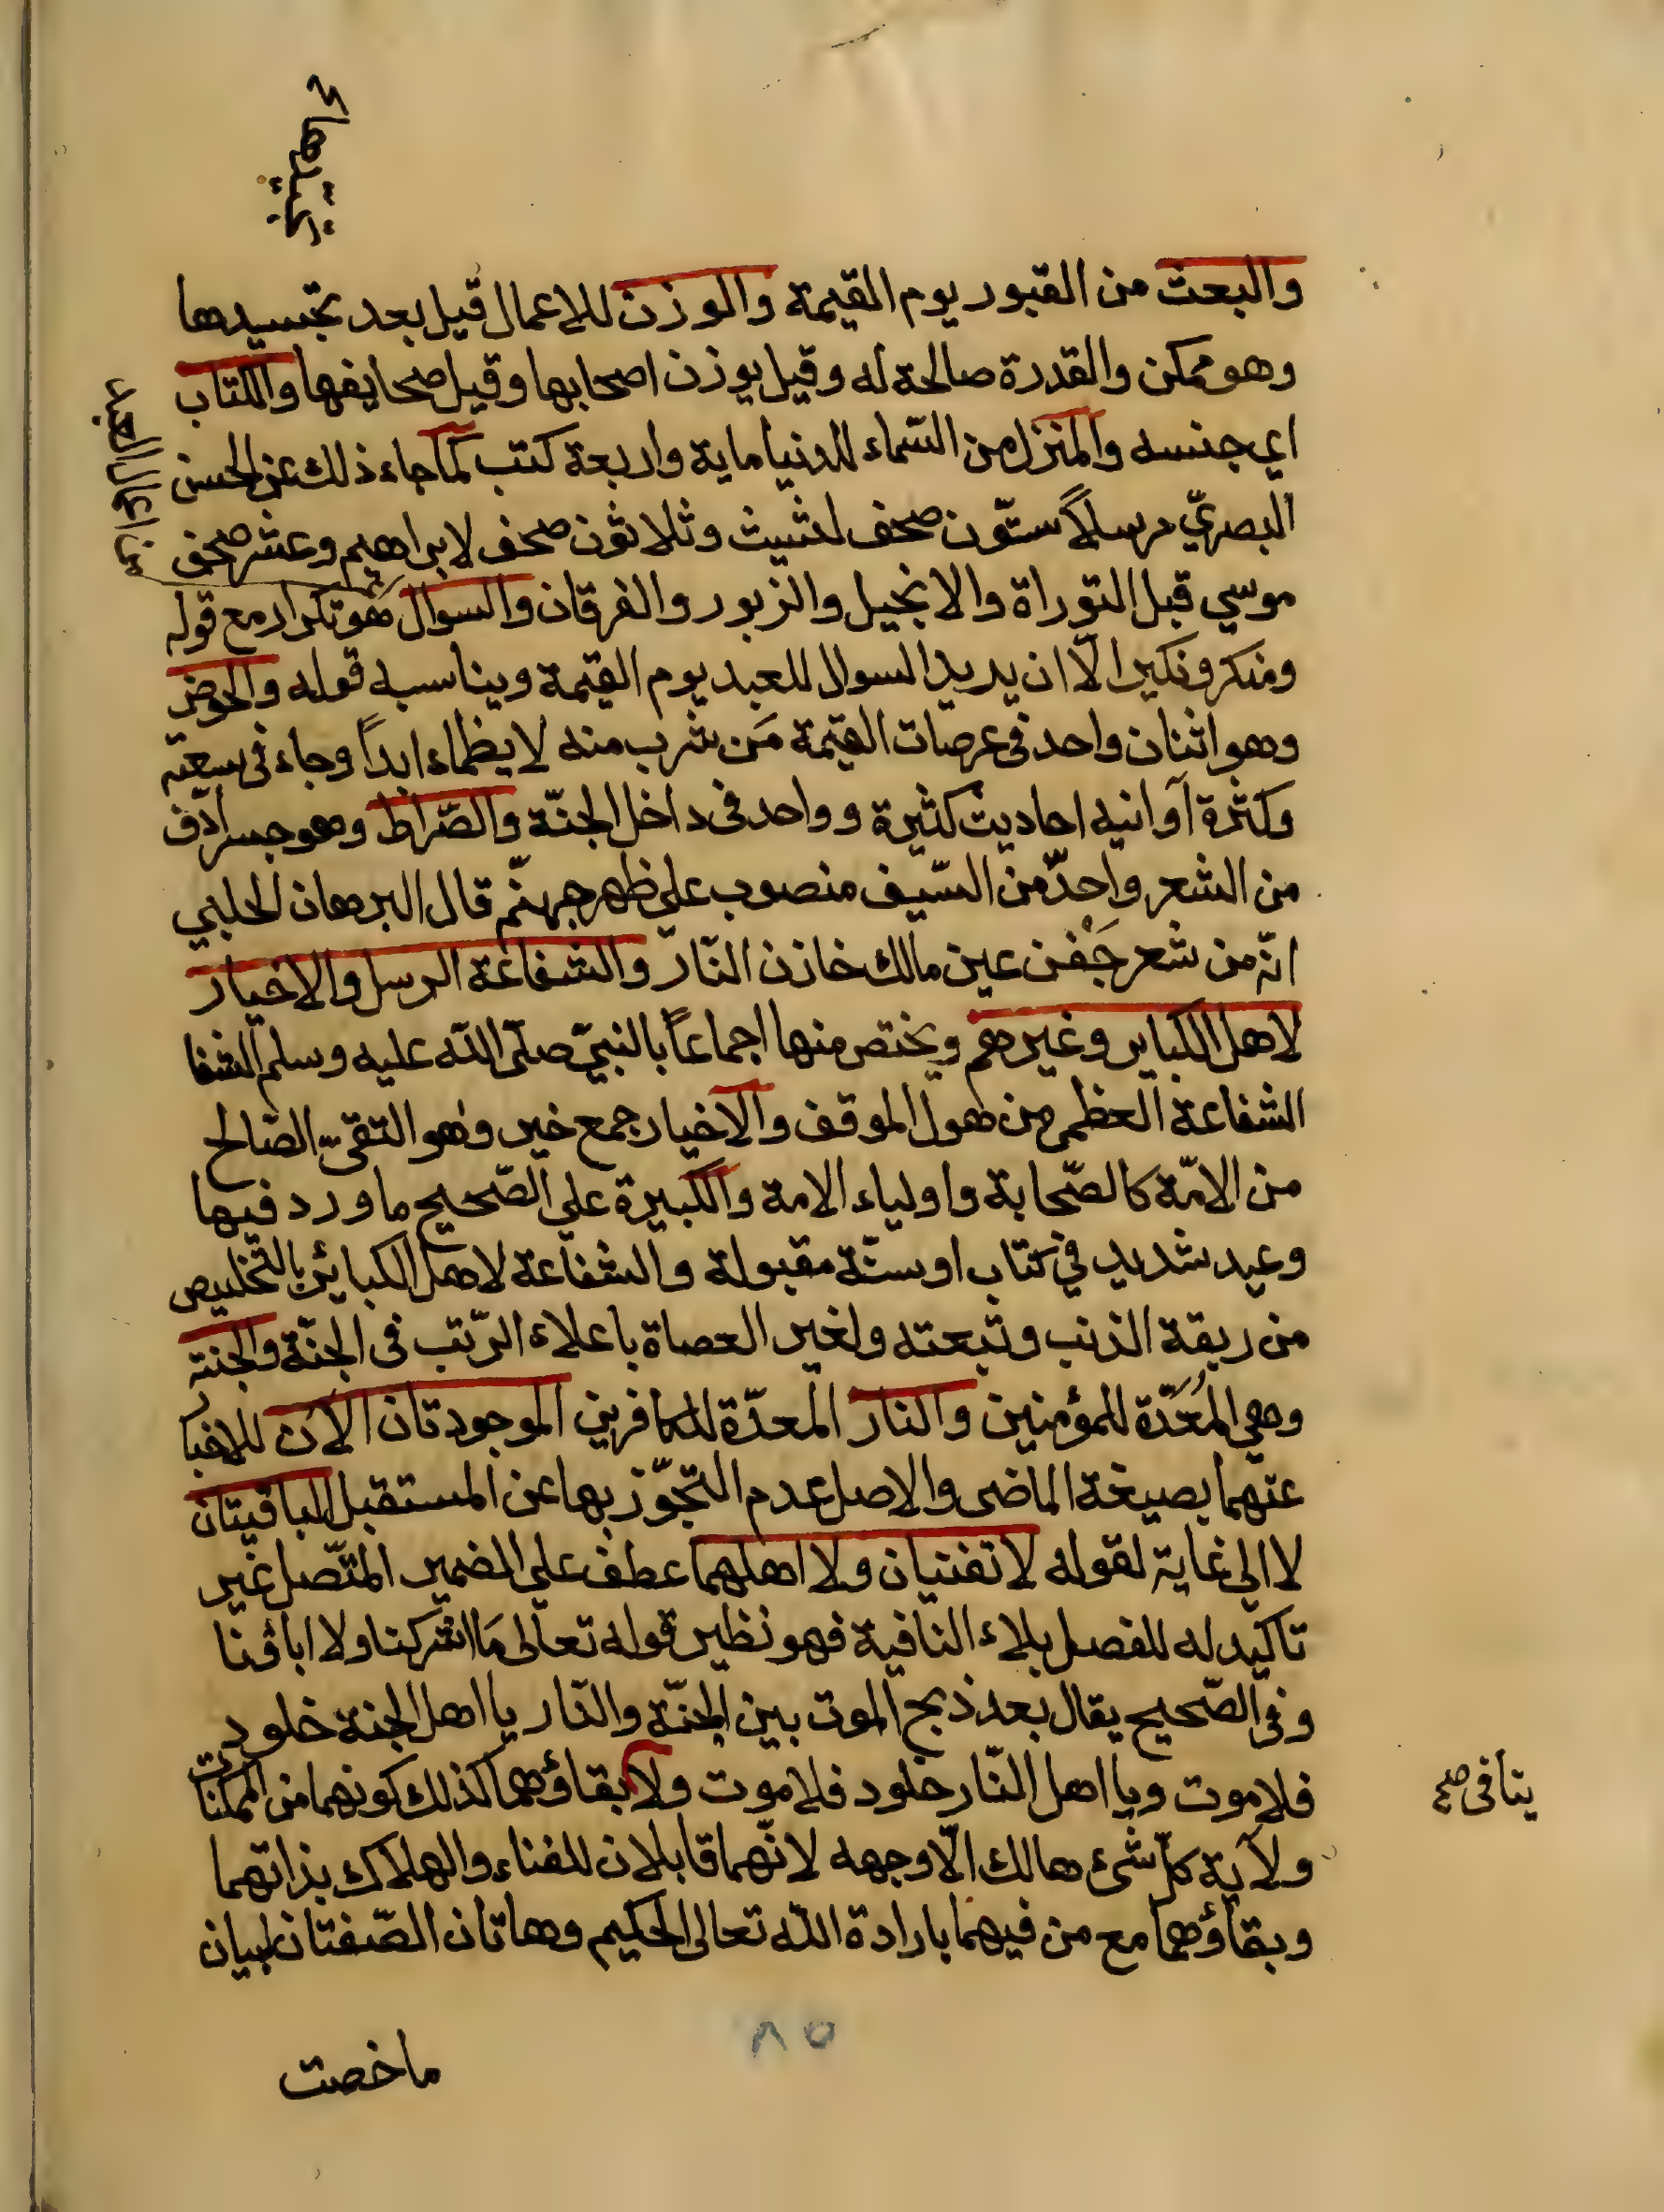 والبعث من القبور يوم القيمة والوزن للاعمال قيل بعد تجسيدها
وهو ممكن والقدرة صالحة له وقيل يوزن اصحابها وقيل صحايفها والكتاب
اي جنسه والمنزل من السّماء للدنيا ماية واربعة كتب كما جاء ذلك عن الحسن
البصريّ مرسلاً ستّون صحف لشيث وثلاثون صحف لابراهيم وعشر صحف
موسي قبل التوراة والانجيل والزبور والفرقان والسوال هو تكرار مع قوله
ومنكر ونكير الّا ان يريد السوال للعبد يوم القيمة ويناسبه قوله والحوض
وهو اثنان واحد في عرصات القيمة مَن شرب منه لا يظماء ابداً وجاء في سعته
وكثرة آوانيه احاديث كثيرة وواحد في داخل الجنّة والصّراط وهو جسر ادّف
من الشعر واحدّ من السّيف منصوب علي ظهر جهنّم قال البرهان الحلبي
انّه من شعر جَفْن عين مالك خازن النّار والشفاعة الرسل والاخيار
لاهل الكباير وغيرهم ويختص منها اجماعاً بالنبيّ صلّى اللّه عليه وسلم الشفا
الشفاعة العظمى من هول الموقف والاخيار جمع خير وهو التقيّ الصّالح
من الامّة كالصّحابة واولياء الامة والكبيرة علي الصّحيح ما ورد فيها
وعيد شديد في كتاب او سنّة مقبولة والشفاعة لاهل الكبائر بالتخليص
من ربقة الذنب وتبعته ولغير العصاة باعلاء الرّتب في الجنّة والجنة
وهي المُعَدّة للمؤمنين والنار المعدّة للكافرين الموجودتان الآن للاخبار
عنهما بصيغة الماضى والاصل عدم التجوّز بها عن المستقبل الباقيتان
لا الي غاية لقوله لا تفنيان ولا اهلهما عطف علي الضمير المتّصل غير
تاكيد له للفصل بلاء النافية فهو نظير قوله تعالى مَا اشركنا ولا اباؤنا
وفي الصّحيح يقال بعد ذبح الموت بين الجنّة والنّار يا اهل الجنة خلود
فلا موت ويا اهل النّار خلود فلا موت ولا بقاؤهما كذلك كونهما من الممكنات
ينافى صح
ولآية كلّ شىء هالك الّا وجهه لانّهما قابلان للفناء والهلاك بذاتهما
وبقاؤهما مع من فيهما بارادة اللّه تعالى الحكيم وهاتان الصّفتان لبيان
٨٥
ماخصت